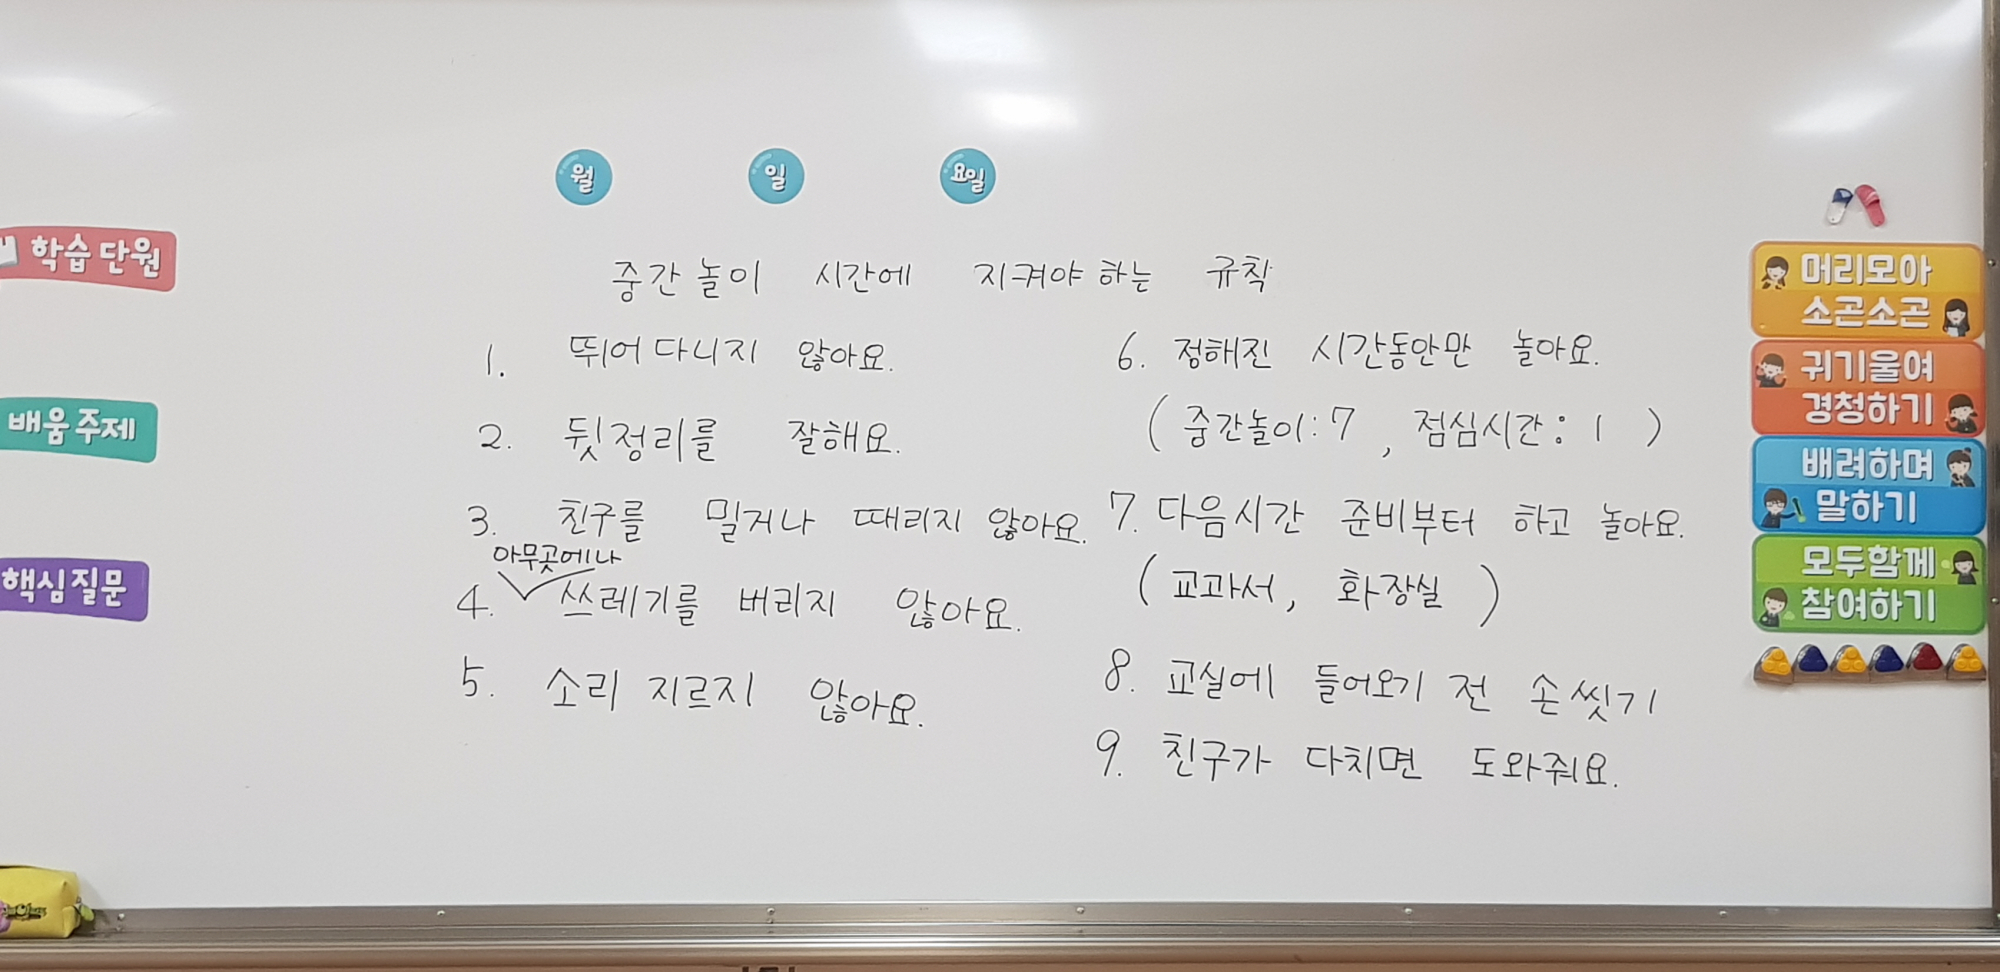 월 일 요일
중간 놀이 시간에 지켜야 하는 규칙
1. 뛰어 다니지 않아요.
2. 뒷정리를 잘해요.
3. 친구를 밀거나 때리지 않아요.
아무곳에나
4. 쓰레기를 버리지 않아요.
5. 소리 지르지 않아요.
6. 정해진 시간동안만 놀아요.
( 중간놀이:7 , 점심시간:1 )
7. 다음시간 준비부터 하고 놀아요.
( 교과서, 화장실 )
8. 교실에 들어오기 전 손 씻기
9. 친구가 다치면 도와줘요.
학습 단원
배움 주제
핵심 질문
머리모아
소곤소곤
귀기울여
경청하기
배려하며
말하기
모두함께
참여하기